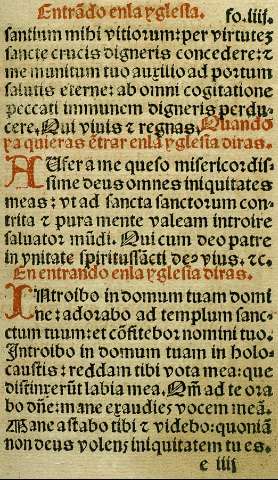 Entrãdo enla yglesia. fo.iiij.
santium mihi vitiorum: per virtutez
sancte crucis digneris concedere: et
me munitum tuo auxilio ad portum
salutis eterne: ab omni cogitatione
peccati immunem digneris perdu
cere. Qui viuis et regnas. Quando
ya quieras ẽtrar enla yglesia diras.
AUfer a me queso misericordis-
sime deus omnes iniquitates
meas: vt ad sancta sanctorum con-
trita et pura mente valeam introire
saluator mũdi. Qui cum deo patre
in vnitate spiritussãcti de⁹ viuis. et c.
En entrando enla yglesia diras.
INtroibo in domum tuam domi
ne: adorabo ad templum sanc-
ctum tuum: et cõfitebor nomini tuo.
Introibo in domum tuam in holo-
caustis: reddam tibi vota mea: que
distinxerũt labia mea. Qm̃ ad te ora
bo dñe: mane exaudies vocem meã.
Mane astabo tibi et videbo: quoniã
non deus volens iniquitatem tu es.
e iiij